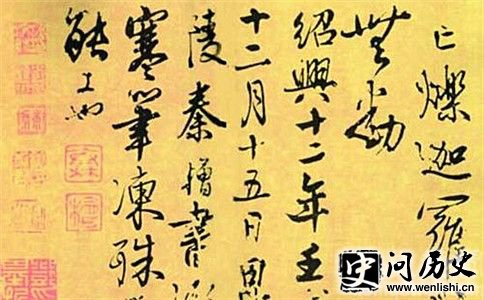 亡爍迦羅
無動
紹興十二年壬
十二月十五日
陵秦檜書
寒筆凍殊
能工也
史 问历史
www.wenlishi.cn